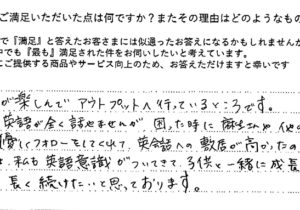 ご満足いただいた点は何ですか？またその理由はどのようなもの
で『満足』と答えたお客さまには似通ったお答えになるかもしれませんが
中でも『最も』満足された件をお伺いしたいと考えています。
にご提供する商品やサービス向上のため、お答えただけますと幸いです
が楽しんでアウトプットへ行っているところです。
英語が全く話せませんが、困った時に麻生さんや他の
優しくフォローをしてくれて、英会話への敷居が高かったの
は、私も英語意識がついてきて、子供と一緒に成長
長く続けたいと思っております。